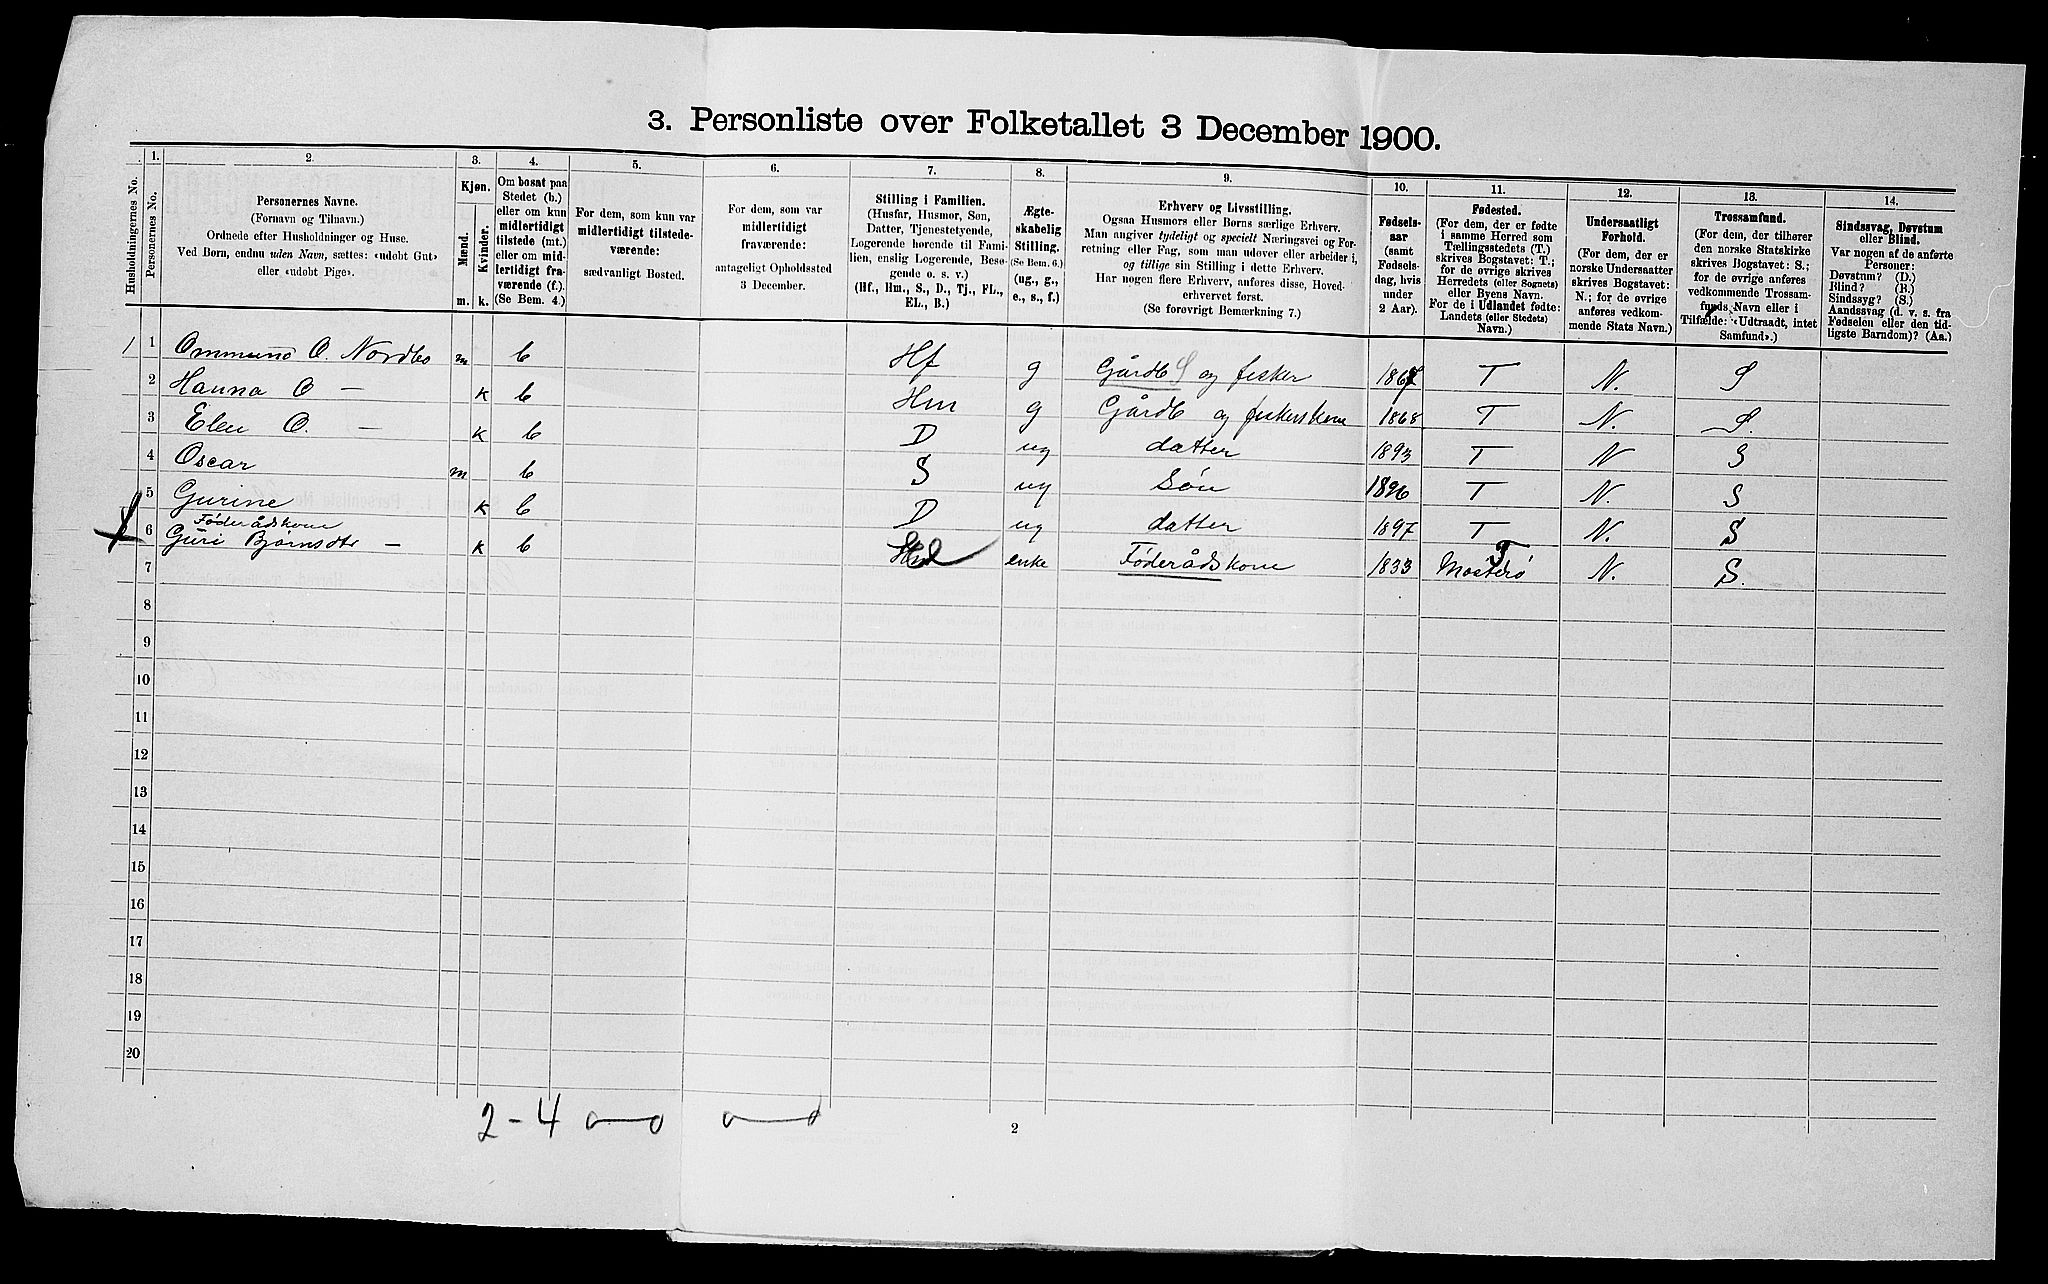 3. Personliste over Folketallet 3 December 1900.
Husholdningernes No.
1.
Personernes No.
2.
Personernes Navne.
(Fornavn og Tilnavn.)
Ordnede efter Husholdninger og Huse.
Ved Børn, endnu uden Navn, sættes: «udøbt Gut»
eller «udøbt Pige».
3.
Kjøn.
Mænd.
Kvinder.
m. k.
4.
Om bosat paa
Stedet (b.)
eller om kun
midlertidigt
tilstede (mt.)
eller om mid-
lertidigt fra-
værende (f.).
(Se Bem. 4.)
5.
For dem, som kun var
midlertidigt tilstede-
værende:
sædvanligt Bosted.
6.
For dem, som var
midlertidigt
fraværende:
antageligt Opholdssted
3 December.
7.
Stilling i Familien.
(Husfar, Husmor, Søn,
Datter, Tjenestetyende,
Logerende hørende til Fami-
lien, enslig Logerende, Besø-
gende o. s. v.)
(Hf., Hm., S., D., Tj., FL.,
EL., B.)
8.
Ægte-
skabelig
Stilling.
(Se Bem. 6.)
(ug., g.,
e., s., f.)
9.
Erhverv og Livsstilling.
Ogsaa Husmors eller Børns særlige Erhverv.
Man angiver tydeligt og specielt Næringsvei og For-
retning eller Fag, som man udøver eller arbeider i,
og tillige sin Stilling i dette Erhverv.
Har nogen flere Erhverv, anføres disse, Hoved-
erhvervet først.
(Se forøvrigt Bemærkning 7.)
10.
Fødsels-
aar
(samt
Fødsels-
dag, hvis
under
2 Aar).
11.
Fødested.
(For dem, der er fødte
i samme Herred som
Tællingsstedets (T.)
skrives Bogstavet: T.;
for de øvrige skrives
Herredets (eller Sognets)
eller Byens Navn.
For de i Udlandet fødte:
Landets (eller Stedets)
Navn.)
12.
Undersaatligt
Forhold.
(For dem, der er
norske Undersaatter
skrives Bogstavet:
N.; for de øvrige
anføres vedkom-
mende Stats Navn.)
13.
Trossamfund.
(For dem, der tilhører
den norske Statskirke
skrives Bogstavet: S.;
for de øvrige anføres
vedkommende Trossam-
funds Navn eller i
Tilfælde: «Udtraadt, intet
Samfund».)
14.
Sindssvag, Døvstum
eller Blind.
Var nogen af de anførte
Personer:
Døvstum? (D.)
Blind? (B.)
Sindssyg? (S.)
Aandssvag (d. v. s. fra
Fødselen eller den tid-
ligste Barndom)? (Aa.)
1 1 Ommund O. Nordbo m b Hf g Gårdb S og fisker 1867 T N. S
2 Hanna O — k b Hm g Gårdb og fiskerskone 1868 T N. S.
3 Elen O. — k b D ug datter 1893 T N S
4 Oscar m b S ug Søn 1896 T N. S
5 Gurine k b D ug datter 1897 T N. S
Føderådskone
6 Guri Bjørnsdtr — k b enke Føderådskone 1833 Mosterø T N. S.
7
8
9
10
11
12
13
14
15
16
17
18
19
20
2 - 4 0—0 0—0
2